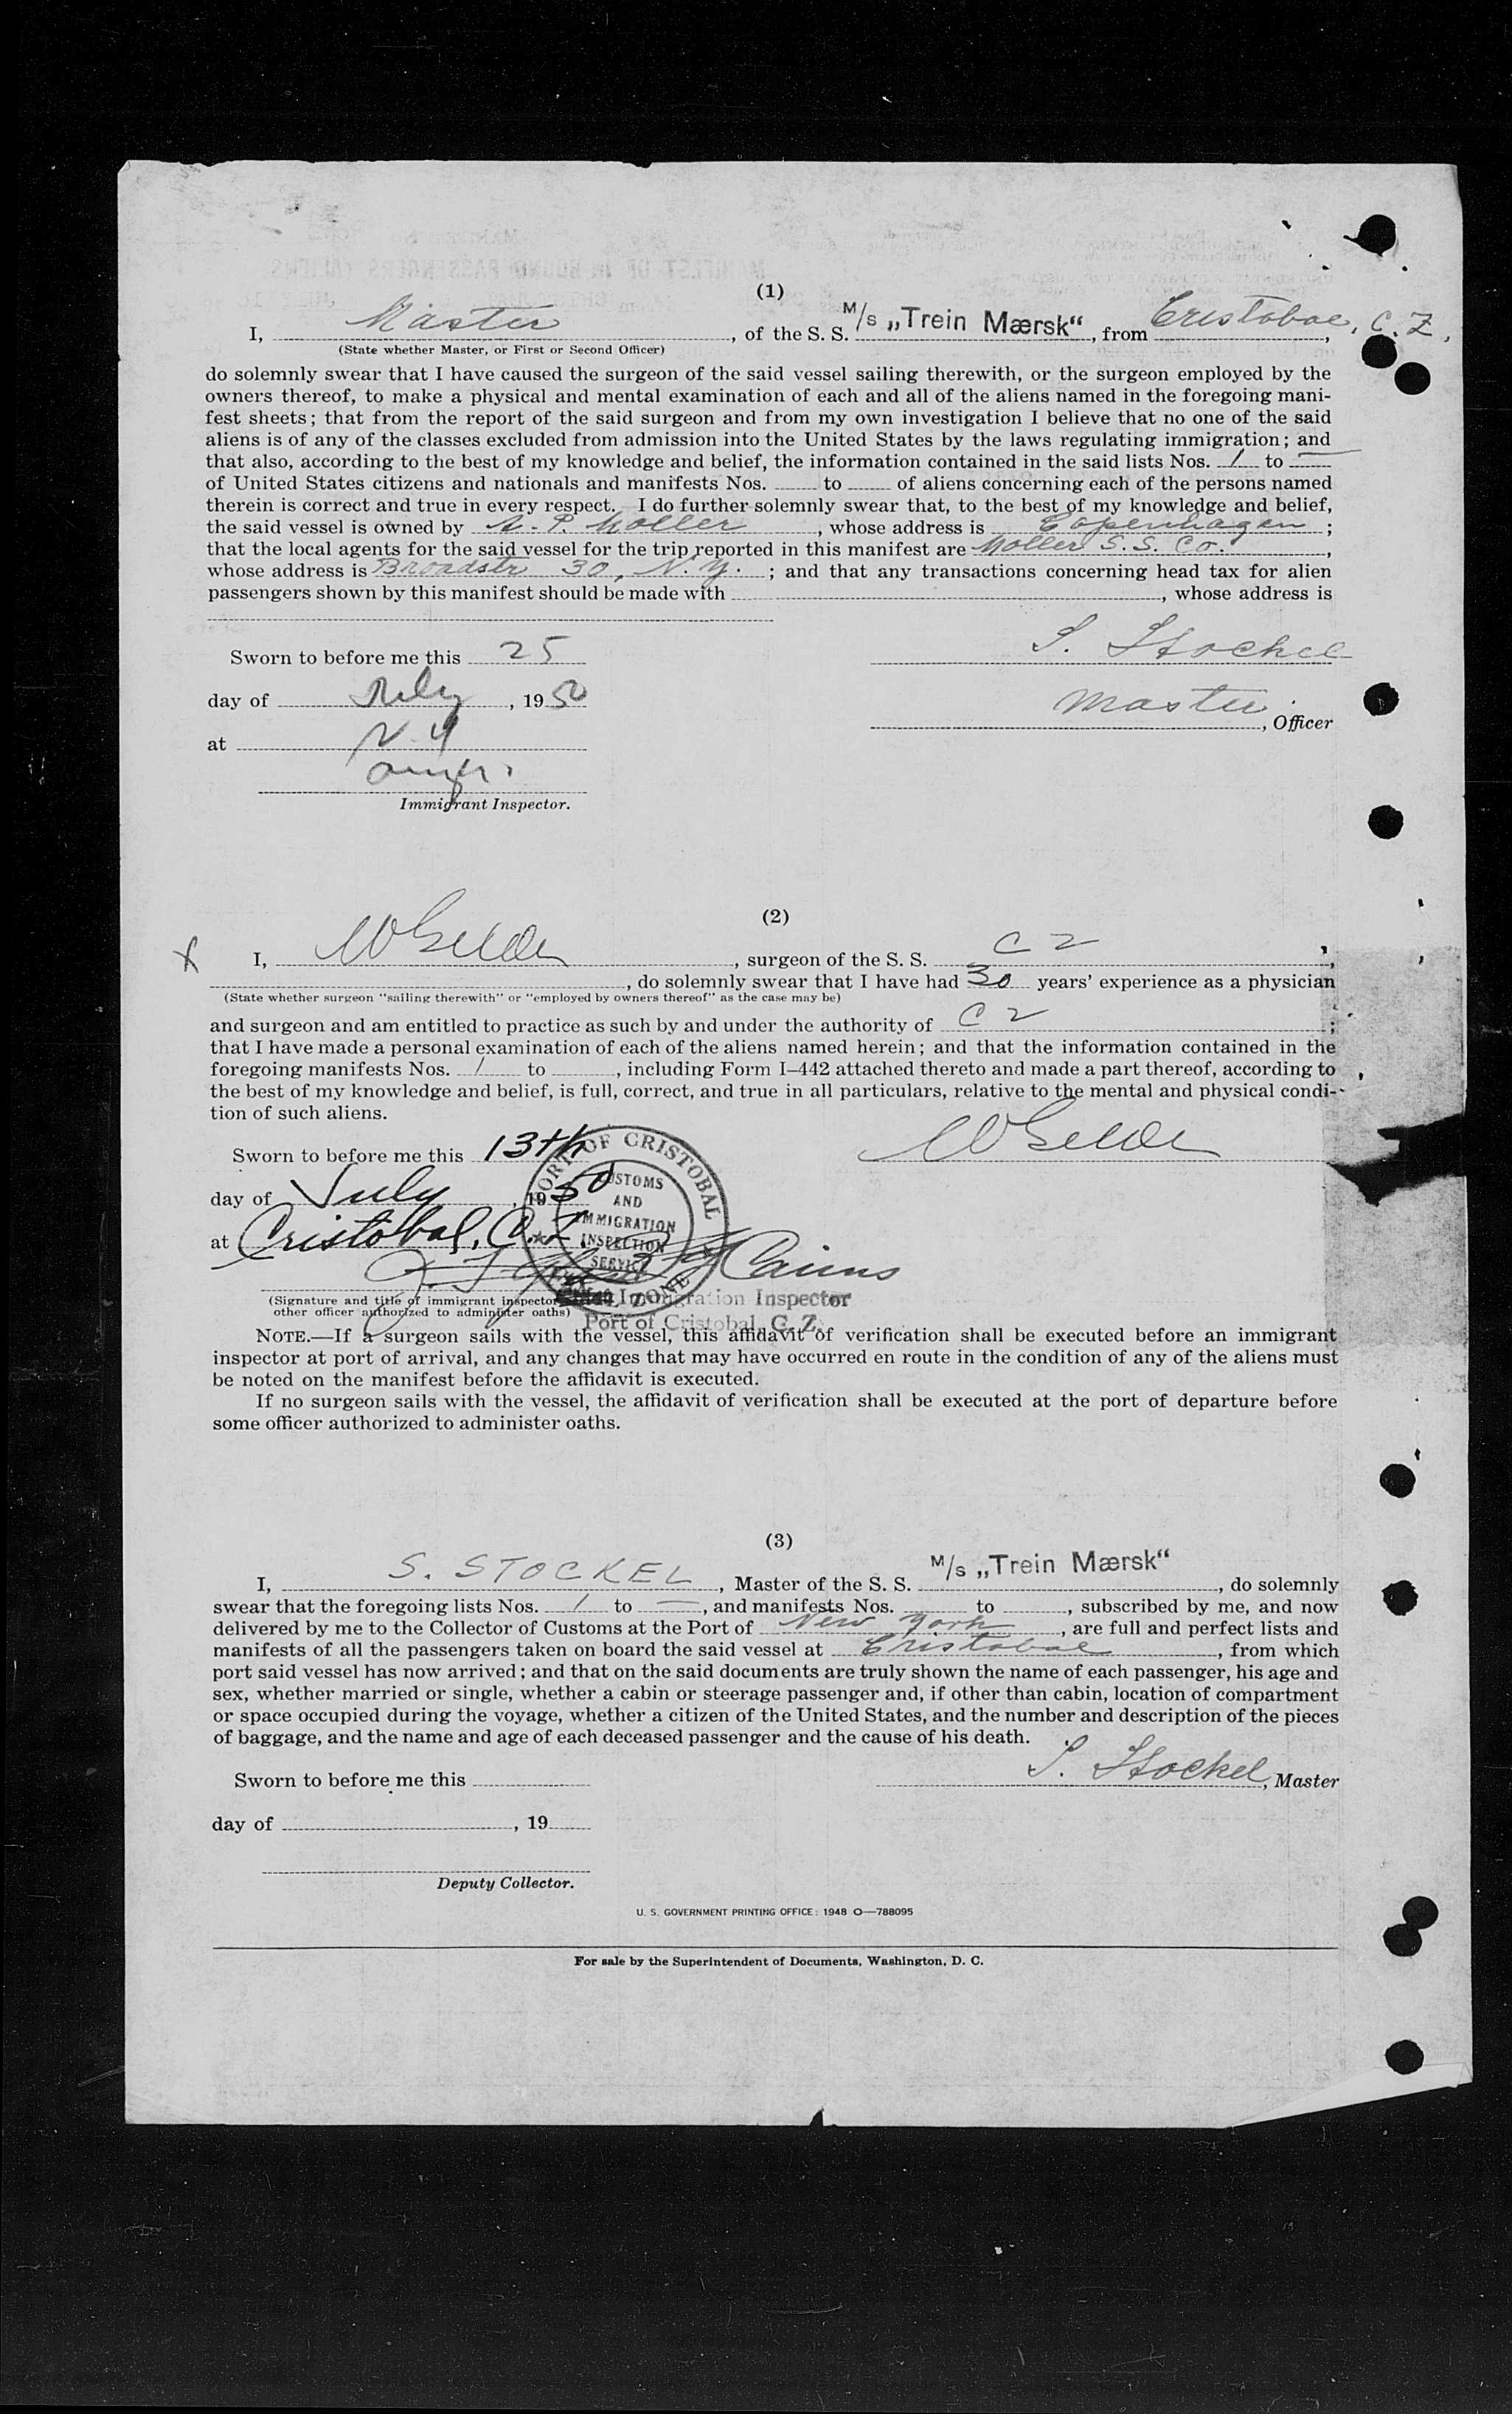 (1)
I, Master, of the S. S. M/s „Trein Mærsk“, from Cristobal, C. Z.,
(State whether Master, or First or Second Officer)
do solemnly swear that I have caused the surgeon of the said vessel sailing therewith, or the surgeon employed by the
owners thereof, to make a physical and mental examination of each and all of the aliens named in the foregoing mani-
fest sheets; that from the report of the said surgeon and from my own investigation I believe that no one of the said
aliens is of any of the classes excluded from admission into the United States by the laws regulating immigration; and
that also, according to the best of my knowledge and belief, the information contained in the said lists Nos. 1 to —
of United States citizens and nationals and manifests Nos. to of aliens concerning each of the persons named
therein is correct and true in every respect. I do further solemnly swear that, to the best of my knowledge and belief,
the said vessel is owned by A. P. Moller, whose address is Copenhagen;
that the local agents for the said vessel for the trip reported in this manifest are Moller S. S. Co.,
whose address is Broadstr 30, N. Y.; and that any transactions concerning head tax for alien
passengers shown by this manifest should be made with , whose address is
S. Stockel
Sworn to before me this 25
day of July, 1950
Master, Officer
at N. Y
Immigrant Inspector.
(2)
I, , surgeon of the S. S. C Z,
, do solemnly swear that I have had 30 years' experience as a physician
(State whether surgeon "sailing therewith" or "employed by owners thereof" as the case may be)
and surgeon and am entitled to practice as such by and under the authority of C Z;
that I have made a personal examination of each of the aliens named herein; and that the information contained in the
foregoing manifests Nos. 1 to , including Form I–442 attached thereto and made a part thereof, according to
the best of my knowledge and belief, is full, correct, and true in all particulars, relative to the mental and physical condi-
tion of such aliens.
Sworn to before me this 13th
day of July, 1950
at Cristobal, C. Z.
PORT OF CRISTOBAL
CUSTOMS
AND
IMMIGRATION
INSPECTION
SERVICE
CANAL ZONE
Cairns
(Signature and title of immigrant inspector
other officer authorized to administer oaths)
Immigration Inspector
Port of Cristobal, C. Z.
NOTE.—If a surgeon sails with the vessel, this affidavit of verification shall be executed before an immigrant
inspector at port of arrival, and any changes that may have occurred en route in the condition of any of the aliens must
be noted on the manifest before the affidavit is executed.
If no surgeon sails with the vessel, the affidavit of verification shall be executed at the port of departure before
some officer authorized to administer oaths.
(3)
I, S. STOCKEL, Master of the S. S. M/s „Trein Mærsk“, do solemnly
swear that the foregoing lists Nos. 1 to —, and manifests Nos. to , subscribed by me, and now
delivered by me to the Collector of Customs at the Port of New York, are full and perfect lists and
manifests of all the passengers taken on board the said vessel at Cristobal, from which
port said vessel has now arrived; and that on the said documents are truly shown the name of each passenger, his age and
sex, whether married or single, whether a cabin or steerage passenger and, if other than cabin, location of compartment
or space occupied during the voyage, whether a citizen of the United States, and the number and description of the pieces
of baggage, and the name and age of each deceased passenger and the cause of his death.
S. Stockel, Master
Sworn to before me this
day of , 19
Deputy Collector.
U. S. GOVERNMENT PRINTING OFFICE: 1948 O—788095
For sale by the Superintendent of Documents, Washington, D. C.